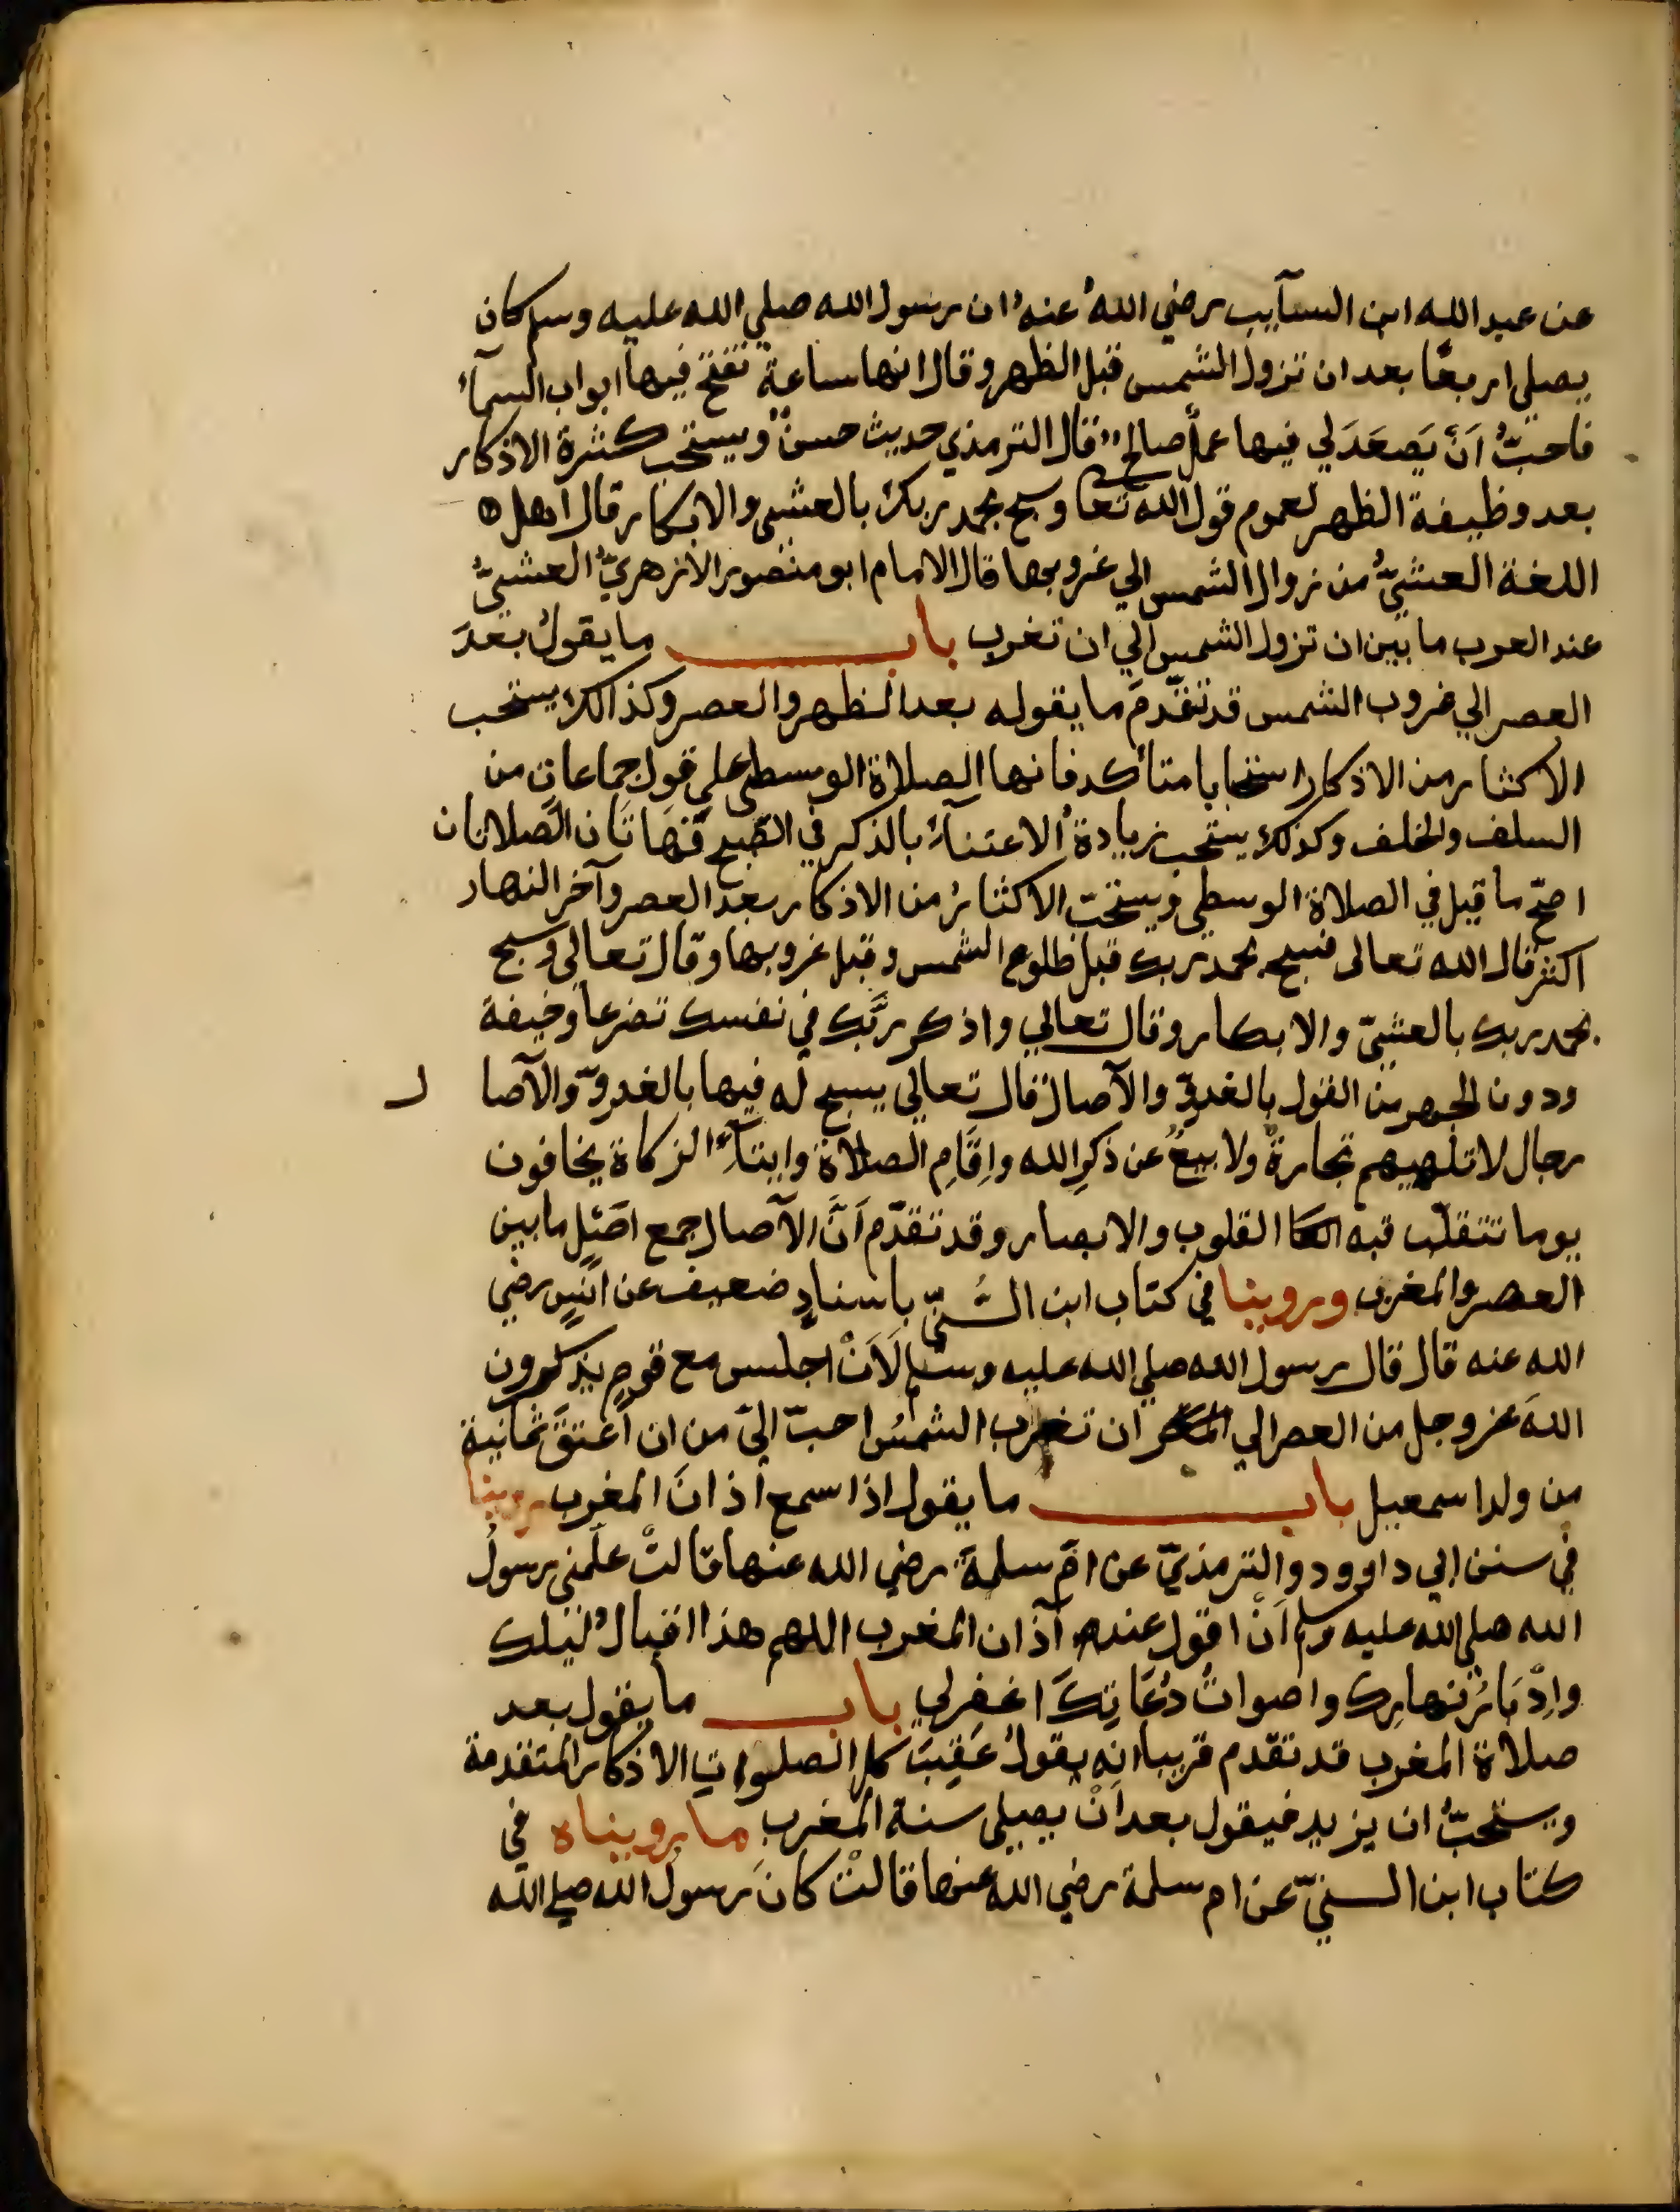 عن عبد الله ابن السآيب رضي اللهُ عنهُ ان رسول الله صلي الله عليه وسلم كان
يصلي اربعًا بعد ان تزول الشمس قبل الظهر وقال انها ساعةٌ تفتح فيها ابواب السمآءُ
فاحبُّ اَنْ يَصعَدَ لي فيها عملٌ صالح قال الترمذي حديث حسنٌ ويستحب كثرة الاذكار
بعد وظيفة الظهر لعموم قول الله تعا وسبح بحمد ربك بالعشي والابكار قال اهل
اللغة العشيُّ من زوال الشمس الي غروبها قال الامام ابو منصور الازهريُّ العشيُّ
عند العرب ما بين ان تزول الشمس الي ان تغرب باب ما يقولُ بعدَ
العصر الي غروب الشمس قد تقدّمَ ما يقوله بعد الظهر والعصر وكذالك يستحب
الاكثار من الاذكار استحبابا متأكد فانها الصلاة الوسطى علي قول جماعاتٍ من
السلف والخلف وكذلك يستحب زيادةُ الاعتنآءُ بالذكر في الصّبح فهَاتَان الصّلاتان
اصحّ ما قيل في الصلاة الوسطي ويستحبّ الاكثارُ من الاذكار بعد العصر وآخر النهار
اكثر قال الله تعالى فسبح بحمد ربك قبل طلوع الشمس وقبل غروبها وقال تعالى وسبح
بحمد ربك بالعشيّ والابكار وقال تعالي واذكر ربَّك في نفسك تضرعا وخيفة
ودون الجهر من القول بالغدوِّ والآصال قال تعالي يسبح له فيها بالغدوّ والآصال
رجال لا تلهيهم تجارةٌ ولا بيعٌ عن ذكرِ الله واِقَامِ الصلاة وايتآءِ الزكاة يخافون
يوما تتقلّب فيه القلوب والابصار وقد تقدّم اَنَّ الآصال جمع اصَيلٍ ما بين
العصر والمغرب وروينا في كتاب ابن السُّنيّ باسنادٍ ضعيف عن انَسٍ رضي
الله عنه قال قال رسول الله صلي الله عليه وسلم لَاَنْ اجلس مع قومٍ يذكرون
اللهَ عز وجل من العصر الي ان تغرب الشمسُ احبّ اليّ من ان اعْتِقَ ثمانية
من ولد اسمعيل باب ما يقول اذا سمع اذانَ المغرب روينا
في سنن ابي داوود والترمذيّ عن امّ سلمةَ رضي الله عنها قالتْ علّمني رسولُ
الله صلي الله عليه وسلم اَنْ اقول عند آذان المغرب اللهم هذا اقبالُ ليلك
واِدْبَارُ نهارِك واصواتُ دُعَاتِكَ اغفرلي باب ما يقول بعد
صلاة المغرب قد تقدم قريبا انه يقولُ عَقِيبَ كل الصلوات الاذكار المتقدمة
ويستحبُّ ان يزيد فيقول بعد اَنْ يصلي سنة المغرب ما رويناه في
كتاب ابن السنيّ عن ام سلمة رضي الله عنها قالتْ كانَ رسول الله صلي الله